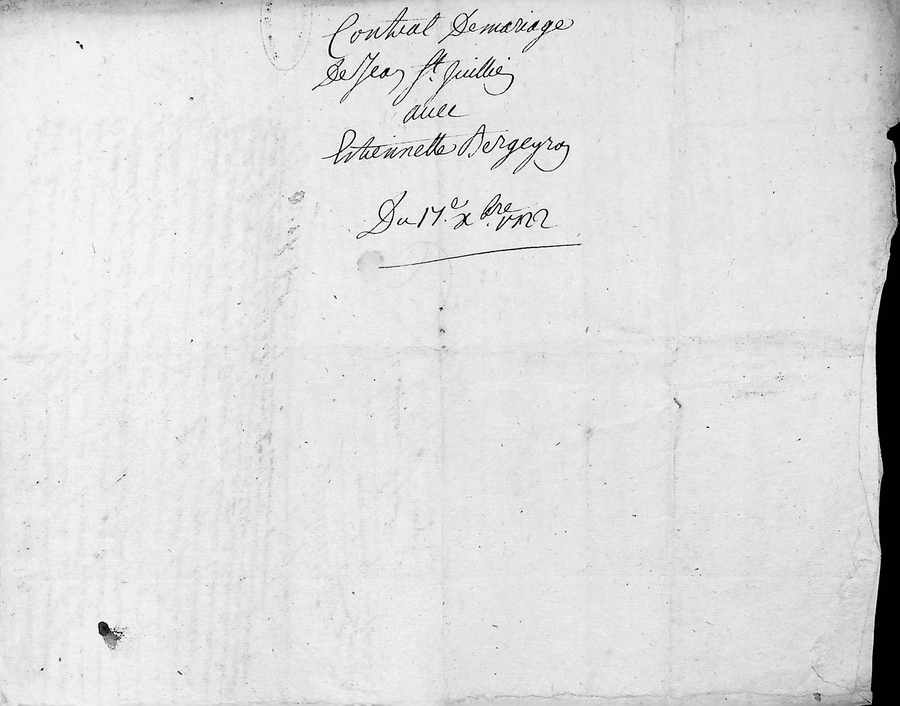 Contrat Demariage
De Jean St. Juillien
avec
Estiennette Bergeyron
Du 17e. Xbre.